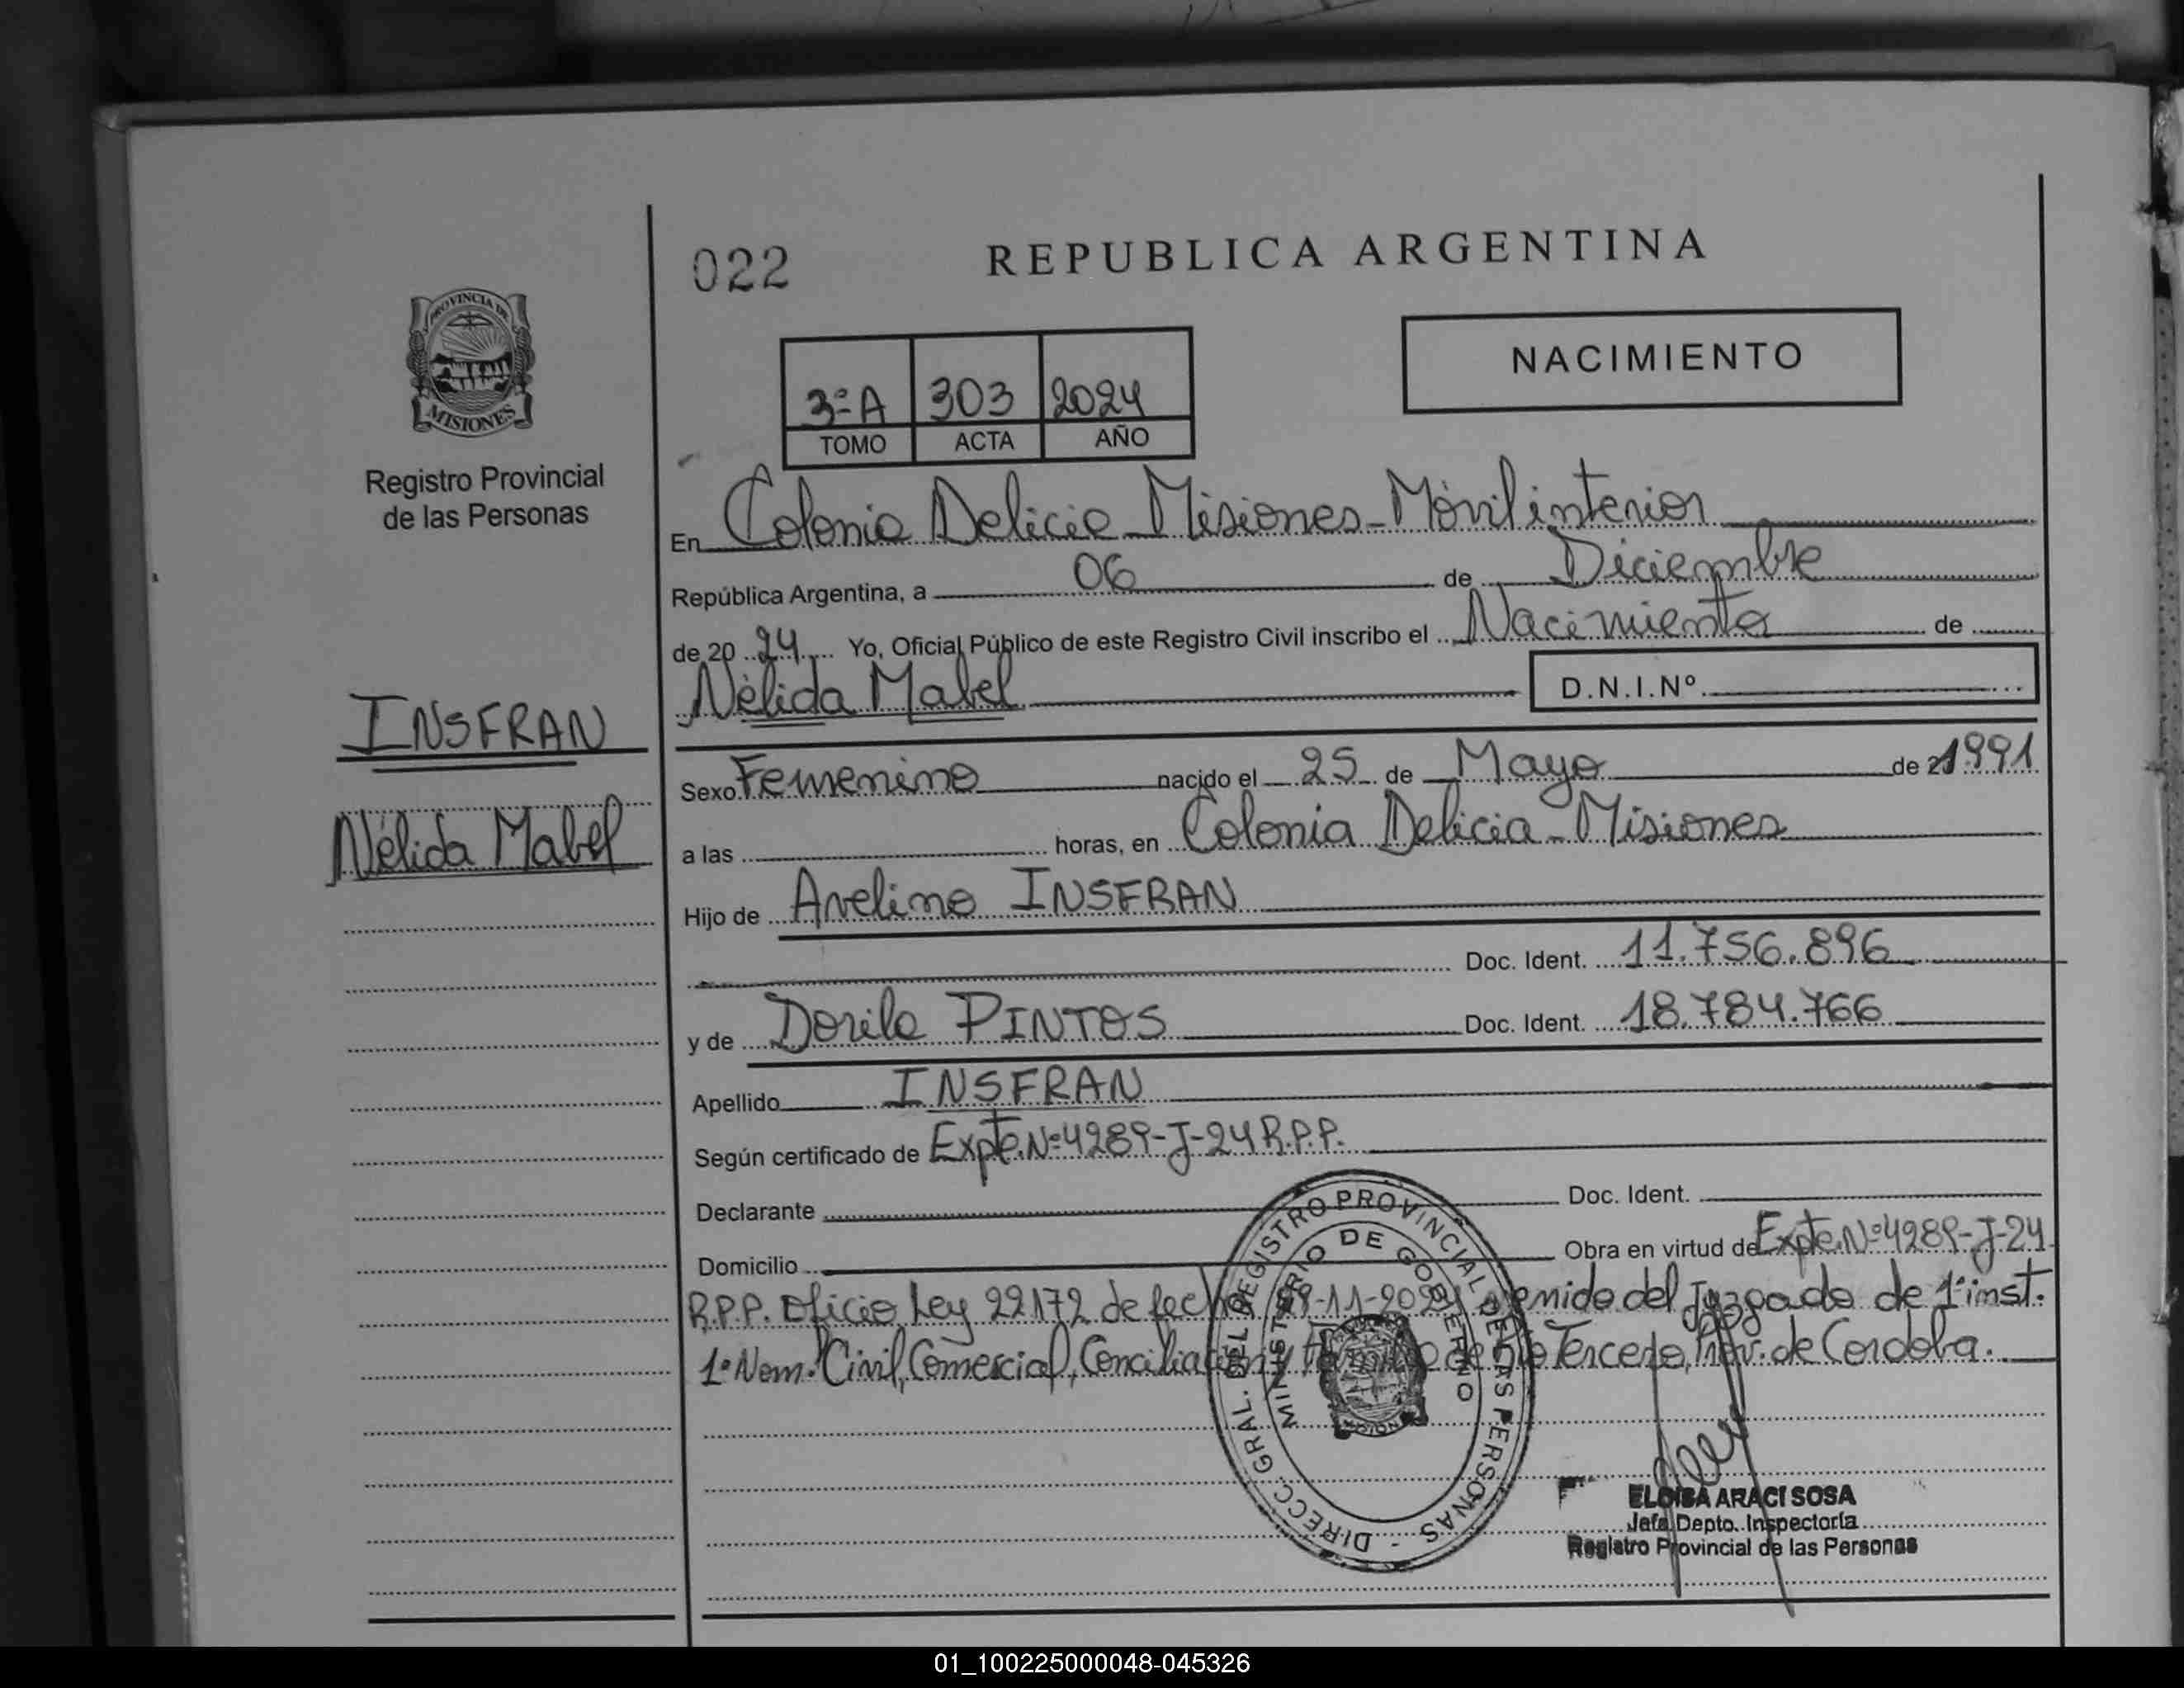 022
REPUBLICA ARGENTINA
PROVINCIA DE
MISIONES
Registro Provincial
de las Personas
3ºA 303 2024
TOMO ACTA AÑO
NACIMIENTO
En Colonia Delicia Misiones - Móvil interior
República Argentina, a 06 de Diciembre
de 2024 Yo, Oficial Público de este Registro Civil inscribo el Nacimiento de
Nélida Mabel D.N.I.Nº
INSFRAN
Nélida Mabel
Sexo Femenino nacido el 25 de Mayo de 1991
a las horas, en Colonia Delicia - Misiones
Hijo de Avelino INSFRAN
Doc. Ident. 11.756.896
y de Dorila PINTOS Doc. Ident. 18.784.766
Apellido INSFRAN
Según certificado de Expte.Nº4289-J-24 R.P.P.
Declarante Doc. Ident.
Domicilio Obra en virtud de Expte.Nº4289-J-24
R.P.P. Oficio Ley 22172 de fecha -11-2024 del Juzgado de 1ºinst.
1ºNom. Civil, Comercial, Conciliación y Familia de Río Tercero, Prov. de Cordoba.
DIRECC. GRAL. DEL REGISTRO PROVINCIAL DE LAS PERSONAS
MINISTERIO DE GOBIERNO
ELOISA ARACI SOSA
Jefa Depto. Inspectoría
Registro Provincial de las Personas
01_100225000048-045326